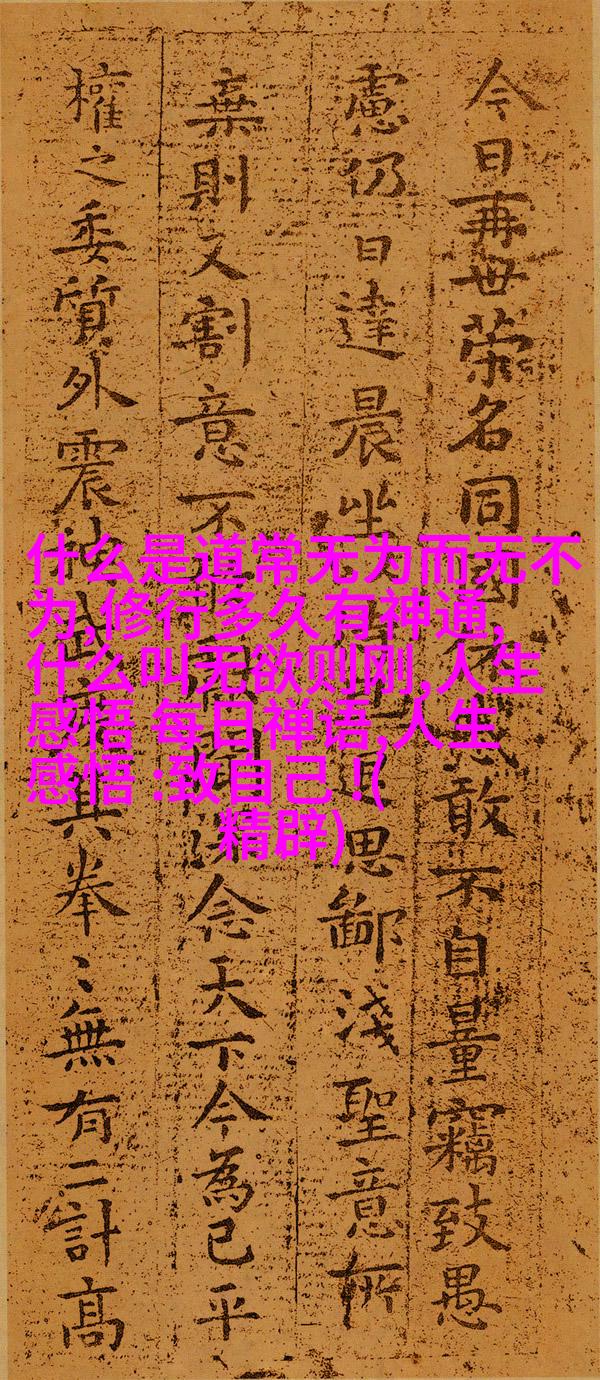 今日再世荣名同國休慼敢不自量竊致愚
慮仍日達晨坐退思鄙淺聖意所
棄則又割意不聞深念天下今為已平
權之委質外震神武度其拳〻無有二計高
什么是道常无为而无不
为,修行多久有神通,
什么叫无欲则刚,人生
感悟 每日禅语,人生
感悟 :致自己 !(
精辟)